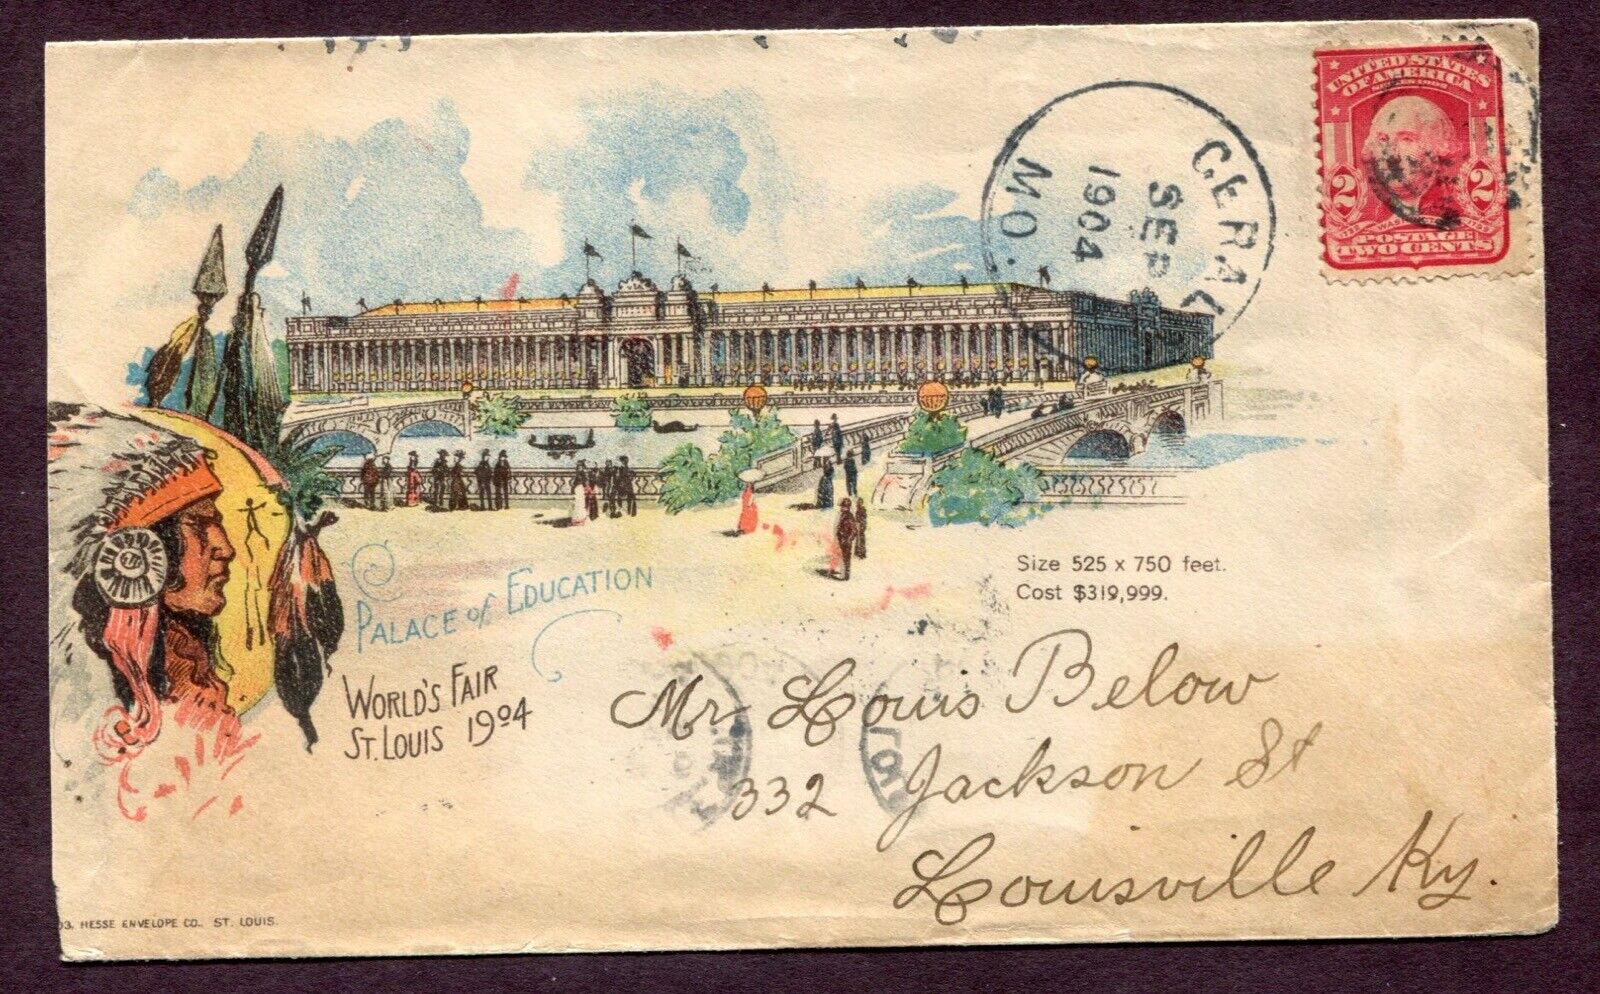 UNITED STATES
OF AMERICA
SERIES 1902
2 2
POSTAGE
TWO CENTS
CERAL
MO.
SEP
1904
Size 525 x 750 feet.
Cost $319,999.
PALACE of EDUCATION
WORLD'S FAIR
ST. LOUIS 1904
Mr Louis Below
332 Jackson St
Louisville Ky.
03, HESSE ENVELOPE CO., ST. LOUIS.